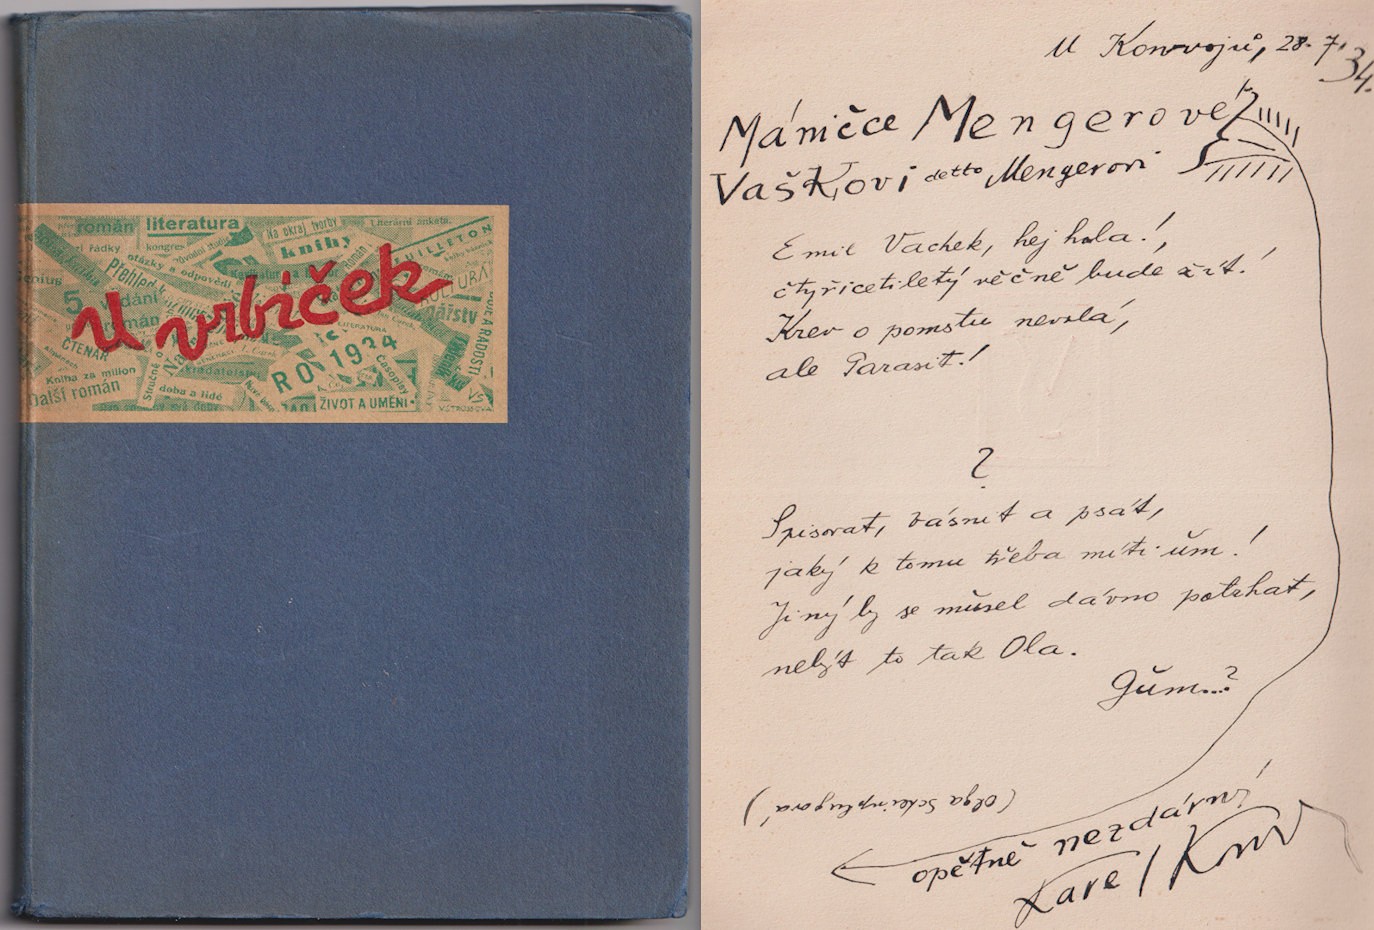 román literatura
Na okraj tvorby
Literární anketa.
knihy
FEUILLETON
řádky
otázky a odpovědi
Přehled
KULTURA
U vrbiček
5.
román
ČTENÁŘ
LITERATURA
ROK 1934
Časopisy
Kniha za milion
Další román
doba a lidé
ŽIVOT A UMĚNÍ
A RADOSTI
U Konvojů, 28. 7. 34.
Máničce Mengerové
Vaškovi detto Mengerovi
Emil Vachek, hej hola!,
čtyřicetiletý věčně bude žít!
Krev o pomstu nevolá,
ale Parasit!
?
Spisovat, básnit a psát,
jaký k tomu třeba míti üm!
Jiný by se müsel dávno potrhat,
nebýt to tak Ola.
Güm...?
(Olga Scheinpflugová,)
opětně nezdární
Karel Konv